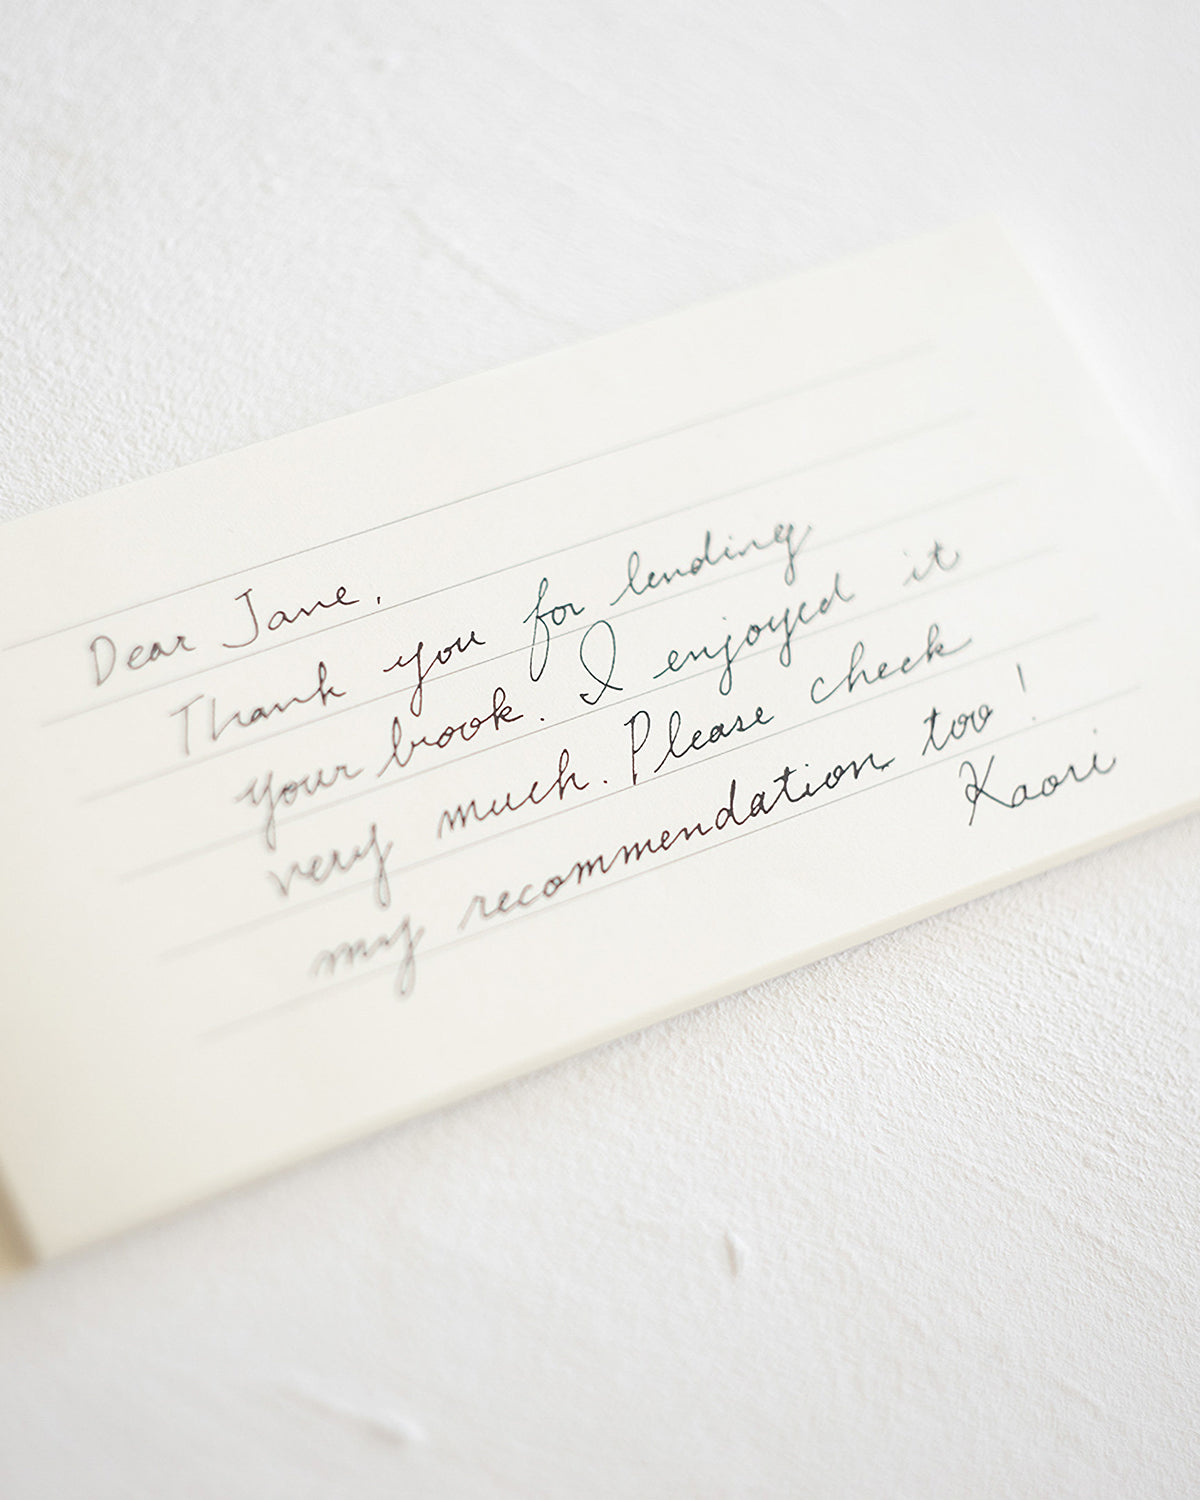 Dear Jane,
Thank you for lending
your book. I enjoyed it
very much. Please check
my recommendation too!
Kaori